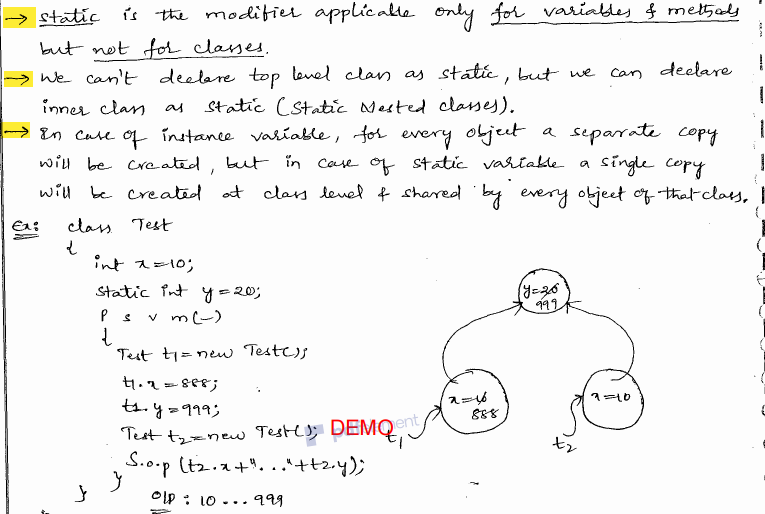 → static is the modifier applicable only for variables & methods
but not for classes.
→ We can't declare top level class as static, but we can declare
inner class as static (static Nested classes).
→ In case of instance variable, for every object a separate copy
will be created, but in case of static variable a single copy
will be created at class level & shared by every object of that class.
Ex: class Test
{
int x=10;
static int y=20;
P s v m(—)
{
Test t1 = new Test();
t1.x = 888;
t1.y = 999;
Test t2 = new Test();
S.o.p (t2.x+"..."+t2.y);
}
}
o/p : 10 ... 999
y=20
999
x=10
888
x=10
t1
t2
DEMO